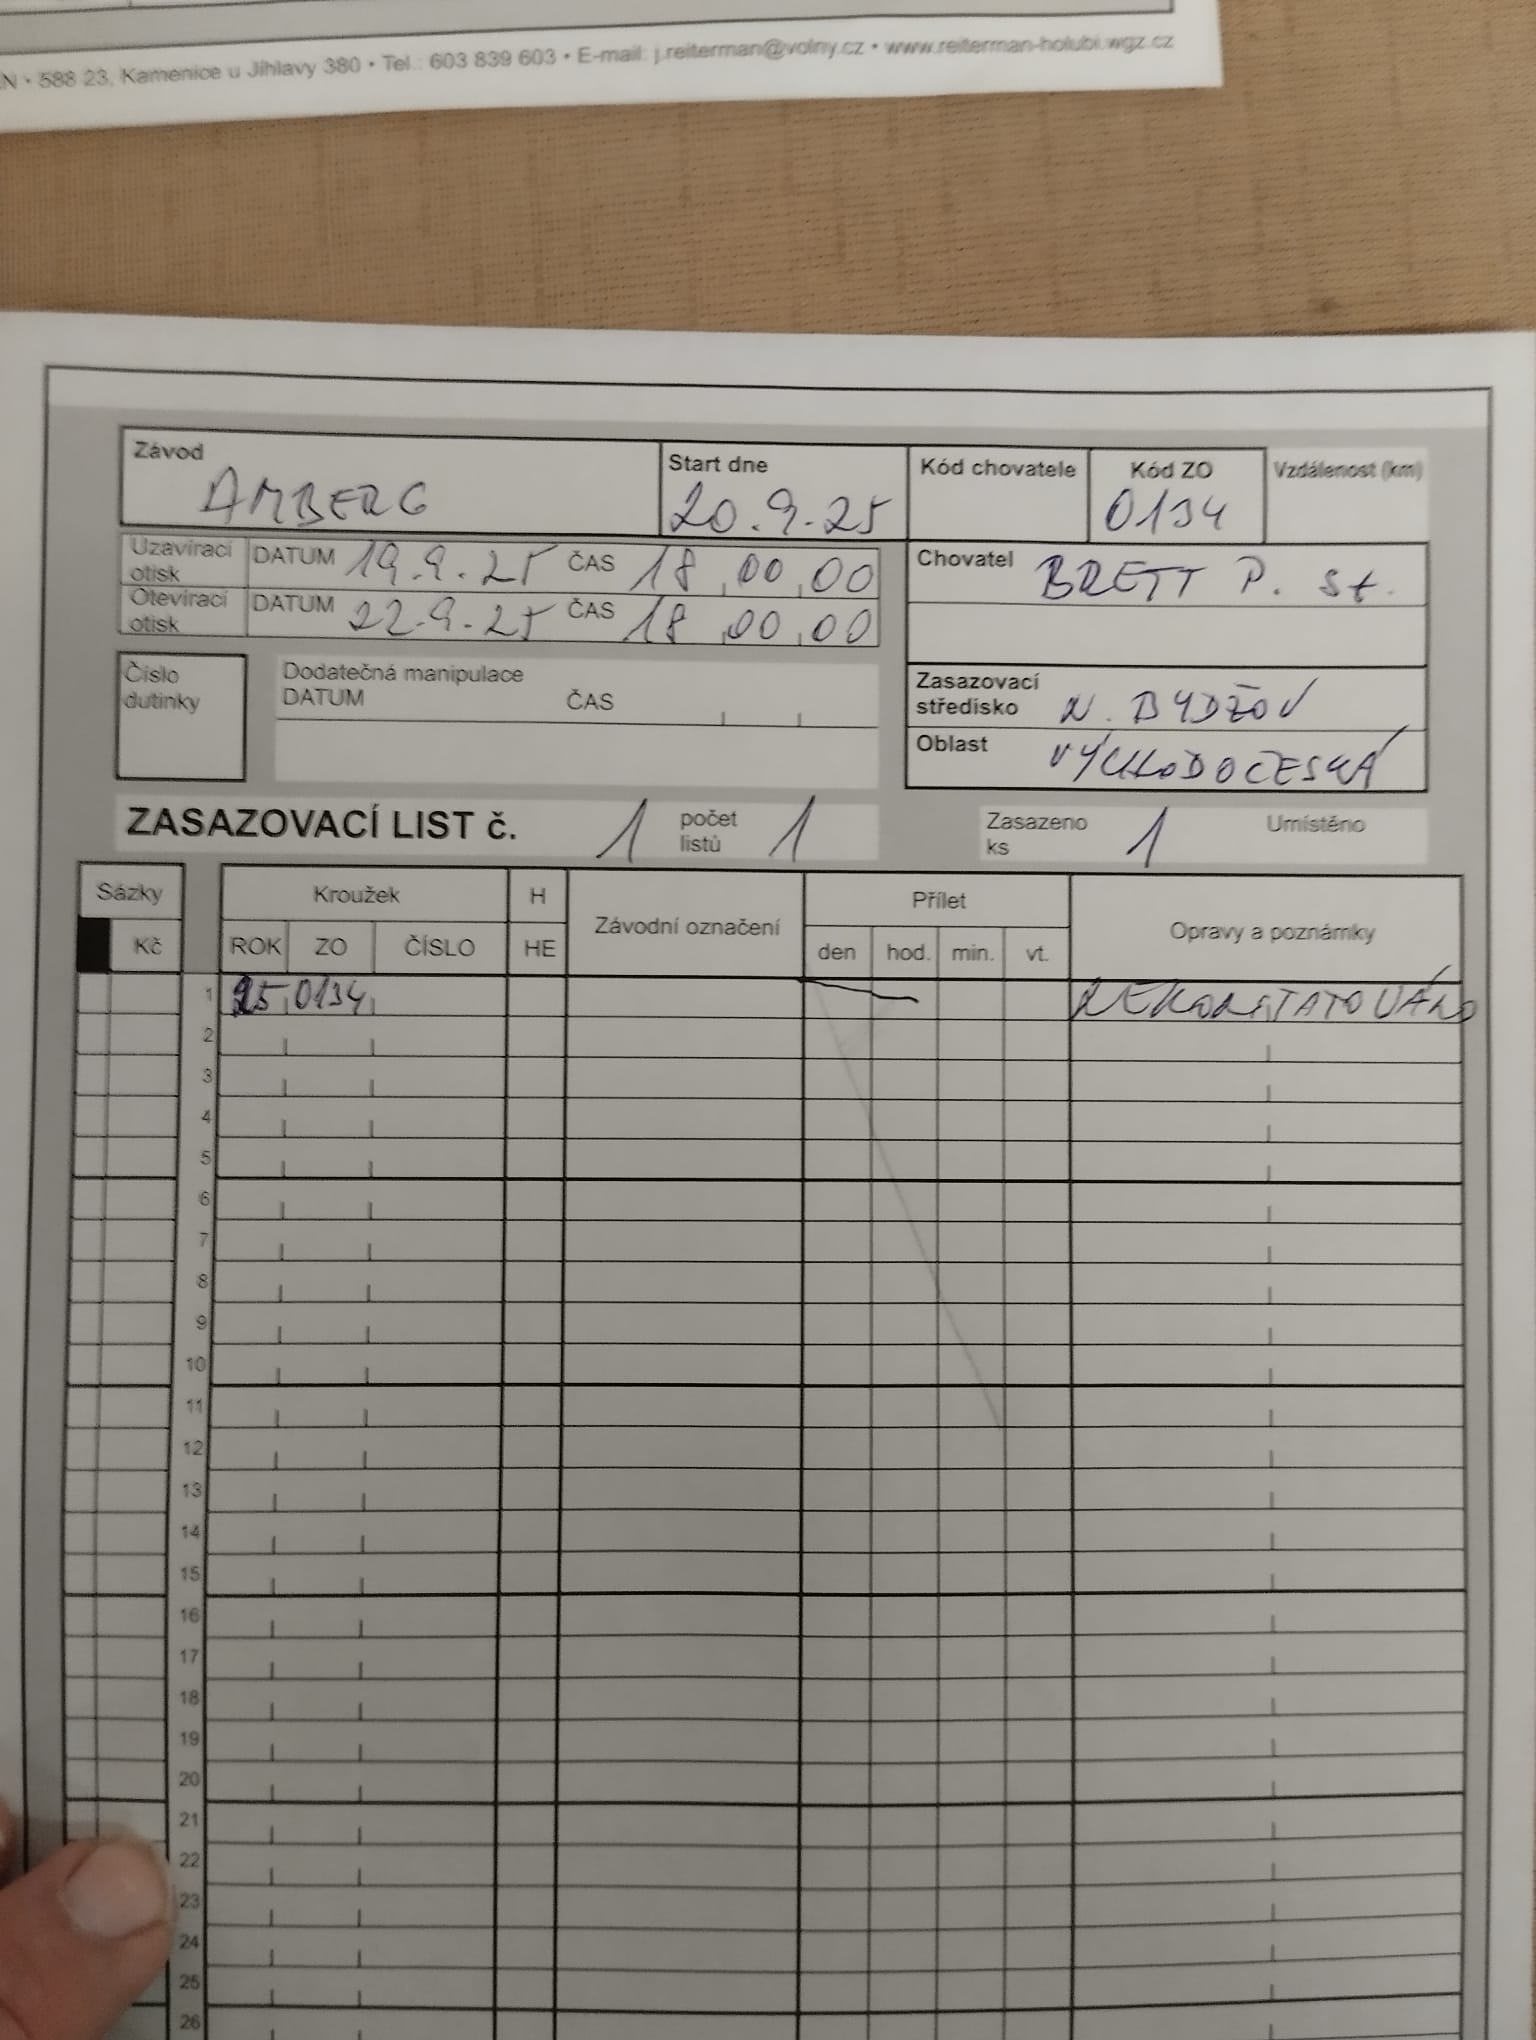 N • 588 23, Kamenice u Jihlavy 380 • Tel.: 603 839 603 • E-mail: j.reiterman@volny.cz • www.reiterman-holubi.wgz.cz
Závod AMBERG
Start dne 20.9.25
Kód chovatele
Kód ZO 0134
Vzdálenost (km)
Uzavírací otisk DATUM 19.9.25 ČAS 18 00 00
Otevírací otisk DATUM 22.9.25 ČAS 18 00 00
Chovatel BRETT P. St.
Číslo dutinky
Dodatečná manipulace
DATUM ČAS
Zasazovací středisko N. BYDŽOV
Oblast VÝCHODOČESKÁ
ZASAZOVACÍ LIST č. 1 počet listů 1 Zasazeno ks 1 Umístěno
Sázky Kroužek H Závodní označení Přílet Opravy a poznámky
Kč ROK ZO ČÍSLO HE den hod. min. vt.
1 25 0134 NEKONSTATOVÁNO
2
3
4
5
6
7
8
9
10
11
12
13
14
15
16
17
18
19
20
21
22
23
24
25
26